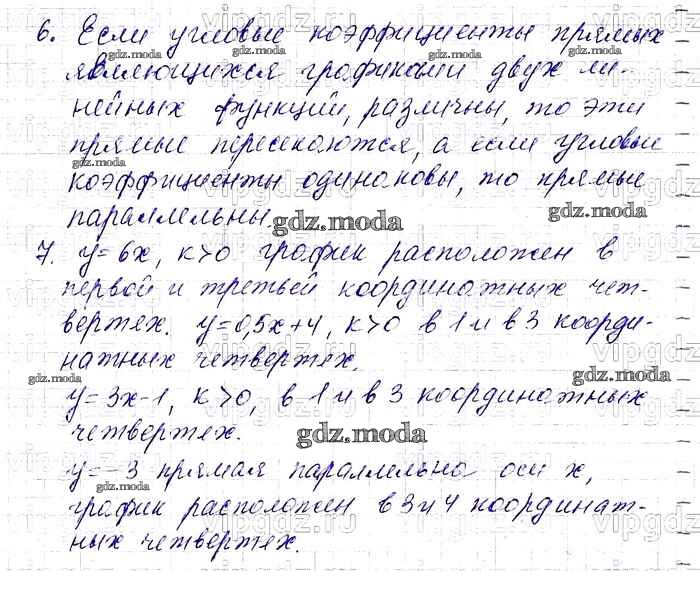 6. Если угловые коэффициенты прямых
являющихся графиками двух ли-
нейных функций, различны, то эти
прямые пересекаются, а если угловые
коэффициенты одинаковы, то прямые
параллельны.
7. y=6x, k>0 график расположен в
первой и третьей координатных чет-
вертех. y=0,5x+4, k>0 в 1 и в 3 коорди-
натных четвертех.
y=3x-1, k>0, в 1 и в 3 координатных
четвертех.
y=-3 прямая параллельна оси x,
график расположен в 3 и 4 координат-
ных четвертех.
gdz.moda
vipgdz.ru